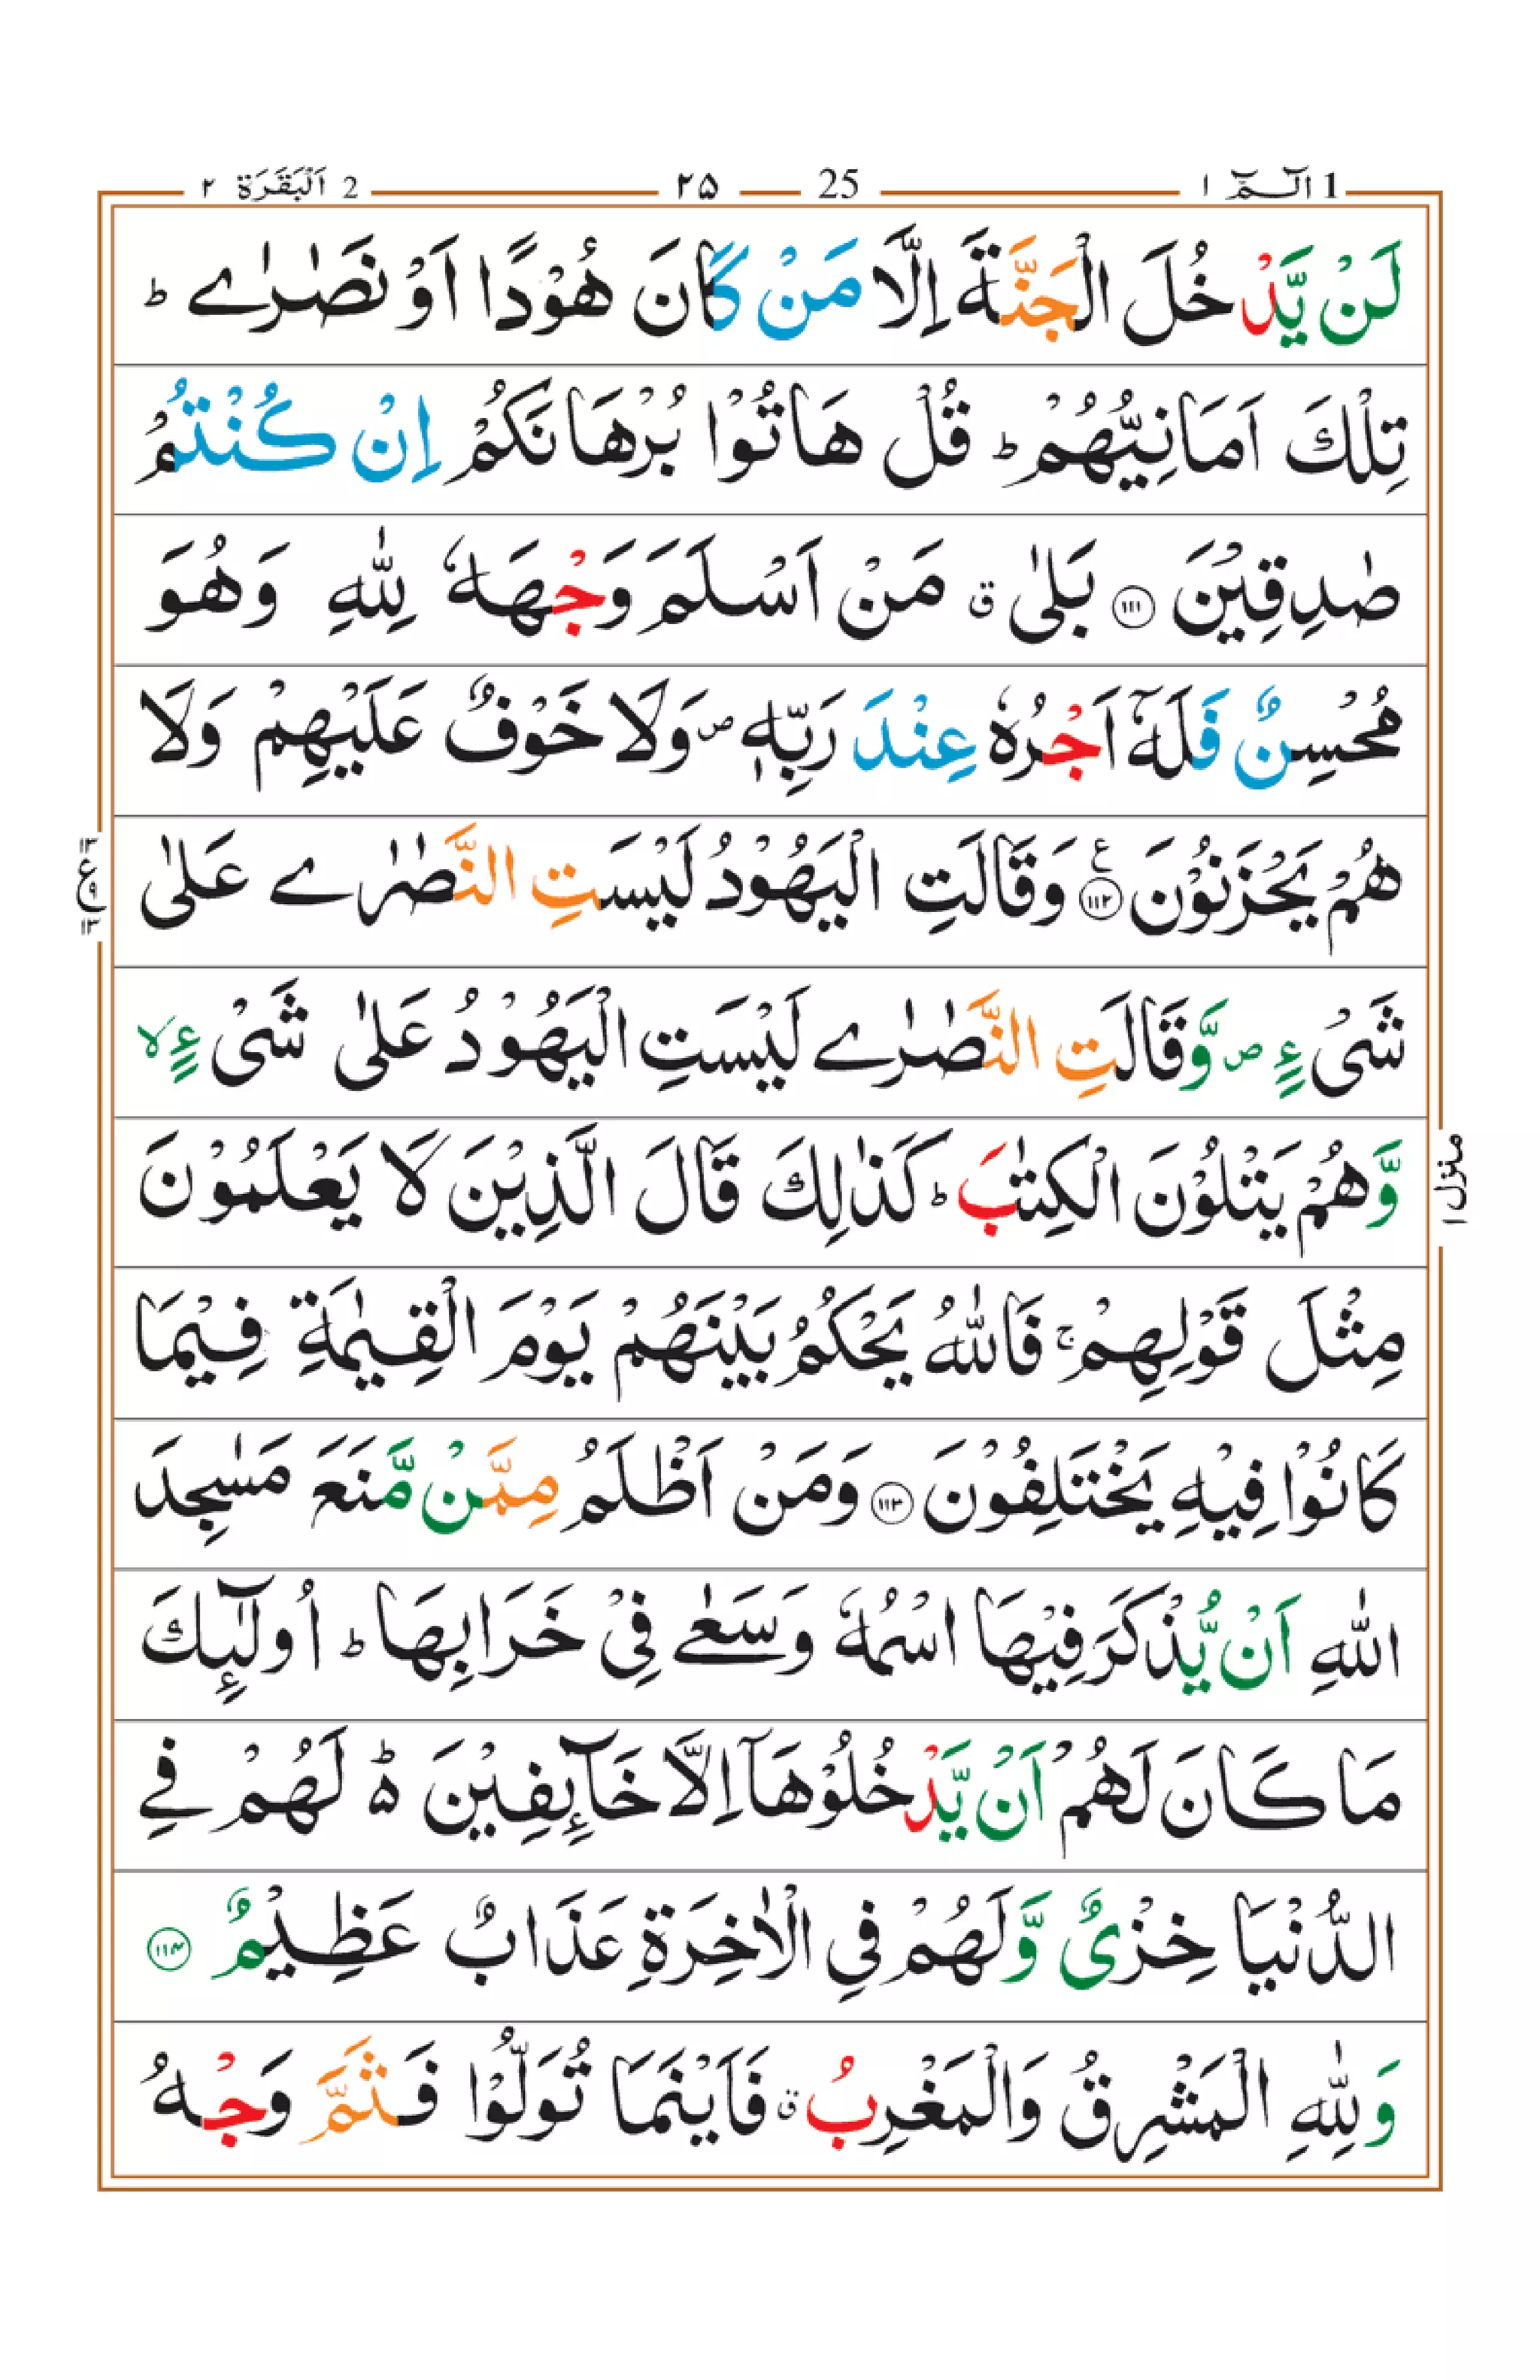 1 الٓـمّٓ ۱ 25 ۲۵ 2 اَلْبَقَرَة ۲
لَنْ يَّدْخُلَ الْجَنَّةَ اِلَّا مَنْ كَانَ هُوْدًا اَوْ نَصٰرٰے ؕ
تِلْكَ اَمَانِيُّهُمْ ؕ قُلْ هَاتُوْا بُرْهَانَكُمْ اِنْ كُنْتُمْ
صٰدِقِيْنَ ۝۱۱۱ بَلٰى ۗ مَنْ اَسْلَمَ وَجْهَهٗ لِلّٰهِ وَهُوَ
مُحْسِنٌ فَلَهٗٓ اَجْرُهٗ عِنْدَ رَبِّهٖ ۪ وَلَا خَوْفٌ عَلَيْهِمْ وَلَا
هُمْ يَحْزَنُوْنَ ۝۱۱۲ ع وَقَالَتِ الْيَهُوْدُ لَيْسَتِ النَّصٰرٰے عَلٰى
۱۳ ع ۹ ۱۳
شَىْءٍ ۪ وَّقَالَتِ النَّصٰرٰے لَيْسَتِ الْيَهُوْدُ عَلٰى شَىْءٍ ۙ
وَّهُمْ يَتْلُوْنَ الْكِتٰبَ ؕ كَذٰلِكَ قَالَ الَّذِيْنَ لَا يَعْلَمُوْنَ
منزل ۱
مِثْلَ قَوْلِهِمْ ۚ فَاللّٰهُ يَحْكُمُ بَيْنَهُمْ يَوْمَ الْقِيٰمَةِ فِيْمَا
كَانُوْا فِيْهِ يَخْتَلِفُوْنَ ۝۱۱۳ وَمَنْ اَظْلَمُ مِمَّنْ مَّنَعَ مَسٰجِدَ
اللّٰهِ اَنْ يُّذْكَرَ فِيْهَا اسْمُهٗ وَسَعٰے فِىْ خَرَابِهَا ؕ اُولٰٓئِكَ
مَا كَانَ لَهُمْ اَنْ يَّدْخُلُوْهَآ اِلَّا خَآئِفِيْنَ ۵ؕ لَهُمْ فِے
الدُّنْيَا خِزْىٌ وَّلَهُمْ فِى الْاٰخِرَةِ عَذَابٌ عَظِيْمٌ ۝۱۱۴
وَلِلّٰهِ الْمَشْرِقُ وَالْمَغْرِبُ ۗ فَاَيْنَمَا تُوَلُّوْا فَثَمَّ وَجْهُ